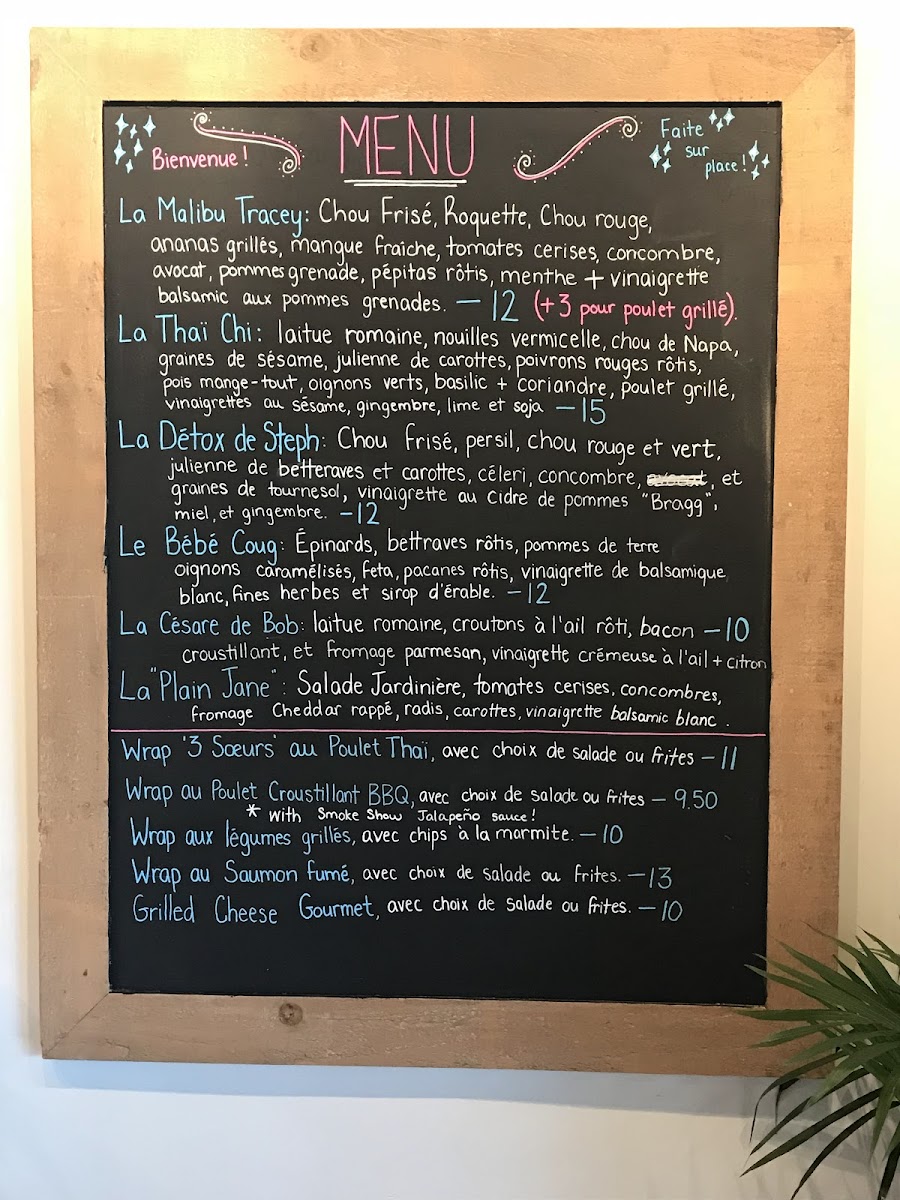 Bienvenue!
MENU
Faite
sur
place!
La Malibu Tracey: Chou Frisé, Roquette, Chou rouge,
ananas grillés, mangue fraiche, tomates cerises, concombre,
avocat, pommes grenade, pépitas rôtis, menthe + vinaigrette
balsamic aux pommes grenades. - 12 (+3 pour poulet grillé).
La Thaï Chi: laitue romaine, nouilles vermicelle, chou de Napa,
graines de sésame, julienne de carottes, poivrons rouges rôtis,
pois mange-tout, oignons verts, basilic + coriandre, poulet grillé,
vinaigrettes au sésame, gingembre, lime et soja - 15
La Détox de Steph: Chou frisé, persil, chou rouge et vert,
julienne de betteraves et carottes, céleri, concombre, avocat, et
graines de tournesol, vinaigrette au cidre de pommes "Bragg",
miel, et gingembre. - 12
Le Bébé Coug: Épinards, bettraves rôtis, pommes de terre
oignons caramélisés, feta, pacanes rôtis, vinaigrette de balsamique
blanc, fines herbes et sirop d'érable. - 12
La Césare de Bob: laitue romaine, croutons à l'ail rôti, bacon - 10
croustillant, et fromage parmesan, vinaigrette crémeuse à l'ail + citron
La "Plain Jane": Salade Jardinière, tomates cerises, concombres,
fromage Cheddar rappé, radis, carottes, vinaigrette balsamic blanc.
Wrap '3 Sœurs' au Poulet Thaï, avec choix de salade ou frites - 11
Wrap au Poulet Croustillant BBQ, avec choix de salade ou frites - 9.50
* with Smoke Show Jalapeño sauce!
Wrap aux légumes grillés, avec chips à la marmite. - 10
Wrap au Saumon fumé, avec choix de salade ou frites. - 13
Grilled Cheese Gourmet, avec choix de salade ou frites. - 10